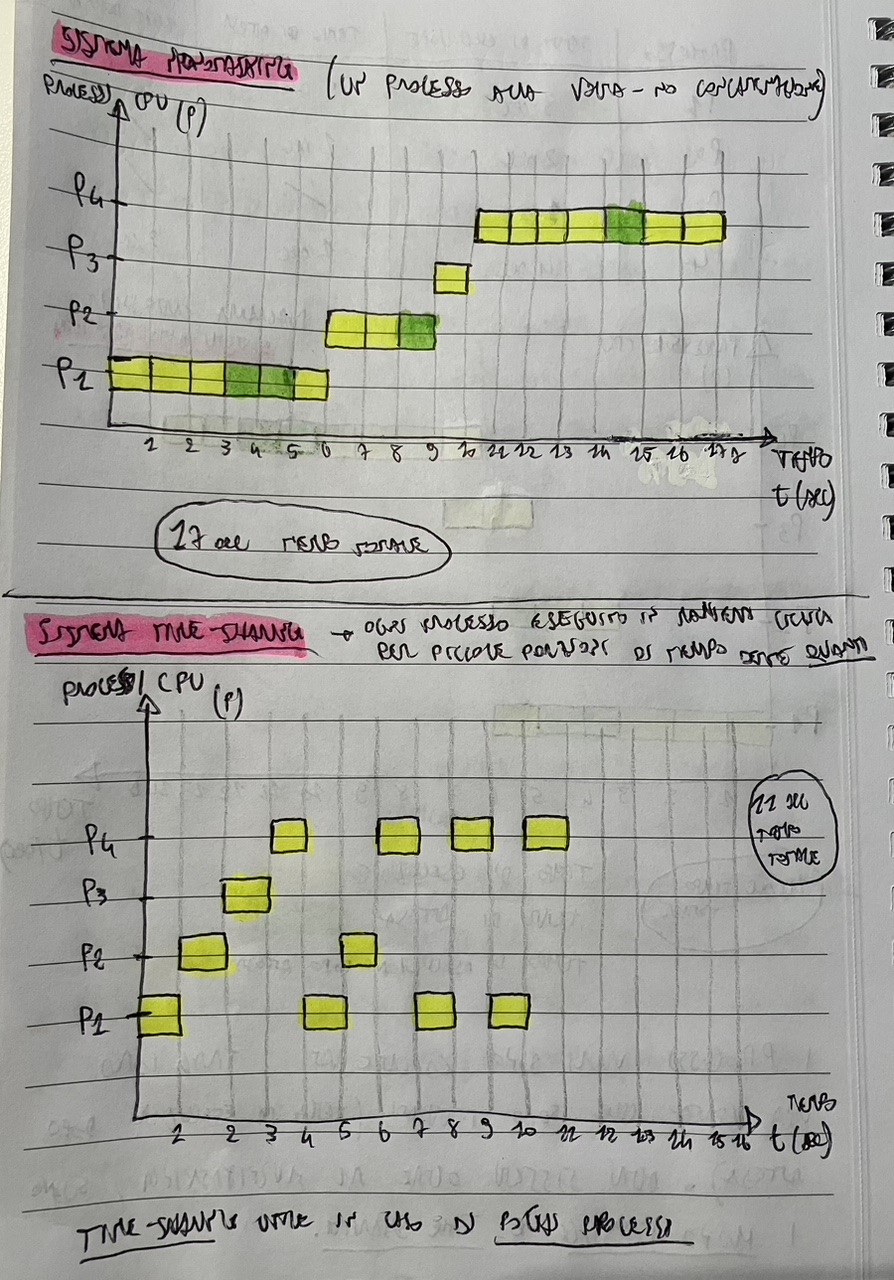 SISTEMA MONOTASKING (UN PROCESSO ALLA VOLTA - NO
PROCESSI CPU (P)
P4
P3
P2
P1
1 2 3 4 5 6 7 8 9 10 11 12 13 14 15 16 17
TEMPO
t (sec)
17 sec TEMPO TOTALE
SISTEMA TIME-SHARING → OGNI PROCESSO ESEGUITO IN MANIERA CICLICA
PER PICCOLE PORZIONI DI TEMPO DETTE QUANTI
PROCESSI CPU (P)
11 SEC
TEMPO
TOTALE
P4
P3
P2
P1
1 2 3 4 5 6 7 8 9 10 11 12 13 14 15 16
TEMPO
t (sec)
TIME-SHARING UTILE IN CASO DI PROCESSI